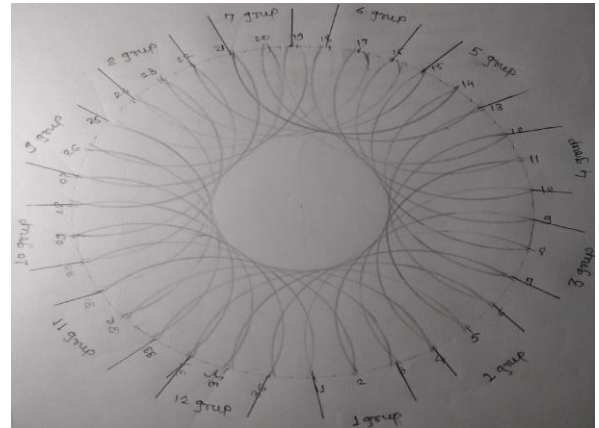 1 grup
2 grup
3 grup
4 grup
5 grup
6 grup
7 grup
8 grup
9 grup
10 grup
11 grup
12 grup
1
2
3
4
5
6
7
8
9
10
11
12
13
14
15
16
17
18
19
20
21
22
23
24
25
26
27
28
29
30
31
32
33
35
36